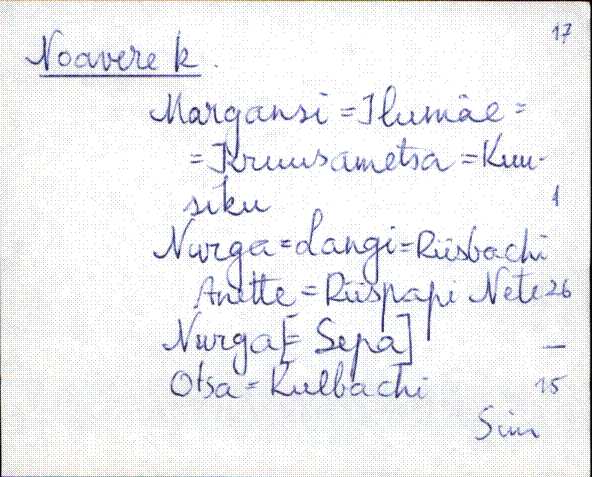 17
Noavere k.
Margansi = Ilumäe =
= Kruusametsa = Kuu-
siku 1
Nurga = Langi = Riisbachi
Anette = Riispapi Nete 26
Nurga [= Sepa] —
Otsa = Kulbachi 15
Sim